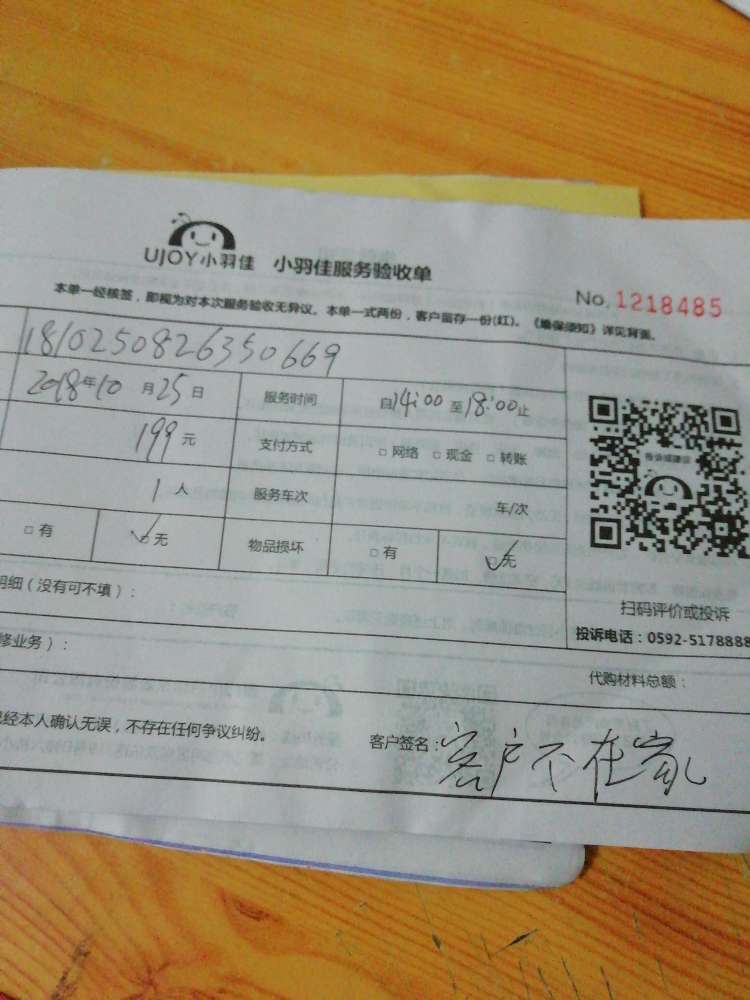 UJOY小羽佳 小羽佳服务验收单
No. 1218485
本单一经核签，即视为对本次服务验收无异议。本单一式两份，客户留存一份(红)。《确保须知》详见背面。
1810250826350669
2018年10月25日 服务时间 自14:00至18:00止
199元 支付方式 □网络 □现金 □转账
1人 服务车次 车/次
□有 □无 物品损坏 □有 □无
扫码评价或投诉
投诉电话：0592-5178888
明细（没有可不填）：
修业务）：
代购材料总额：
已经本人确认无误，不存在任何争议纠纷。
客户签名：客户不在家